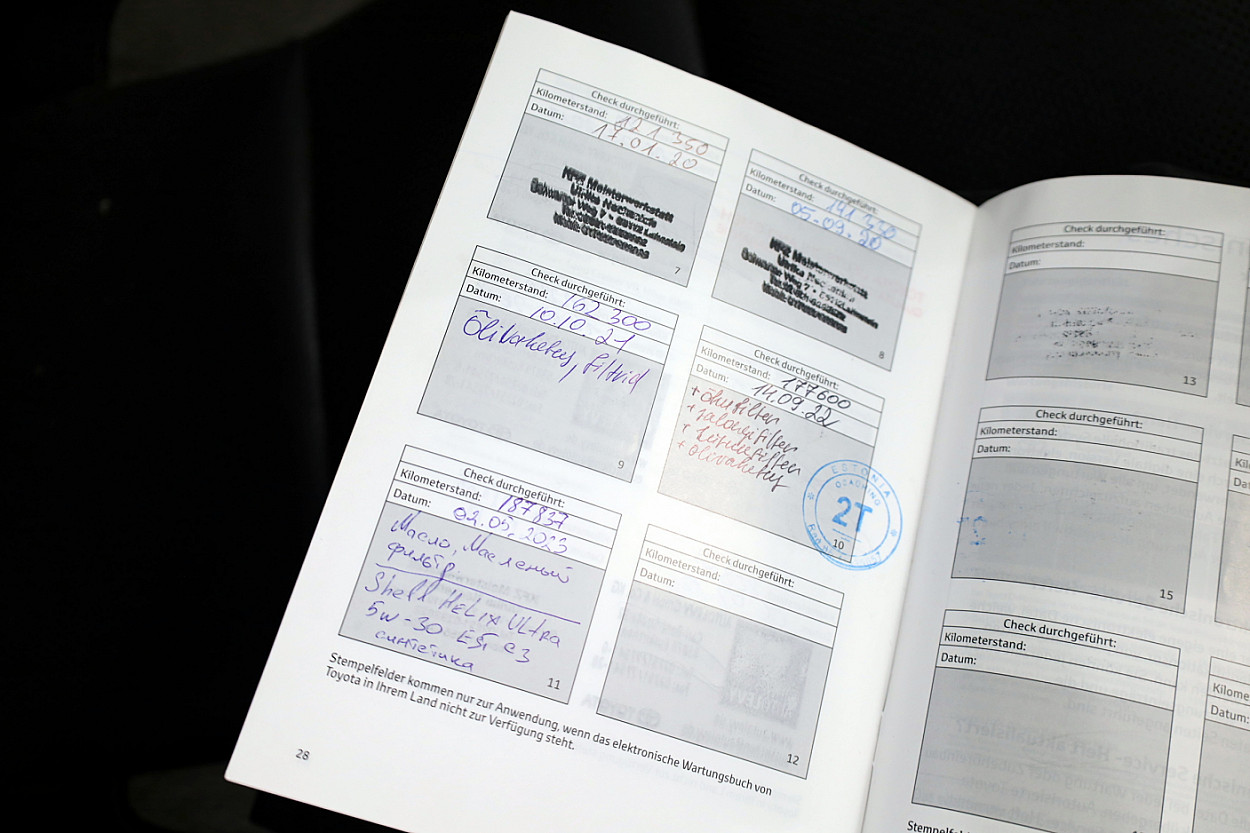 Check durchgeführt:
Kilometerstand: 121 350
Datum: 17.01.20
KFZ Meisterwerkstatt
Ulrike
Schwarzer Weg 7 •
7
Check durchgeführt:
Kilometerstand: 141 330
Datum: 05.09.20
KFZ Meisterwerkstatt
Ulrike
Schwarzer Weg 7 •
8
Check durchgeführt:
Kilometerstand: 162 300
Datum: 10.10.21
Õlivahetus, filtrid
9
Check durchgeführt:
Kilometerstand: 177600
Datum: 14.09.22
+ õhufilter
+ salongifilter
+ kütusefilter
+ õlivahetus
ESTONIA
2T
10
Check durchgeführt:
Kilometerstand: 187837
Datum: 02.05.2023
Масло, Масленый
фильтр
Shell HeLix ULtra
5w-30 C3
синтетика
11
Check durchgeführt:
Kilometerstand:
Datum:
12
Stempelfelder kommen nur zur Anwendung, wenn das elektronische Wartungsbuch von
Toyota in Ihrem Land nicht zur Verfügung steht.
28
Check durchgeführt:
Kilometerstand:
Datum:
13
Check durchgeführt:
Kilometerstand:
Datum:
15
Check durchgeführt:
Kilometerstand:
Datum: